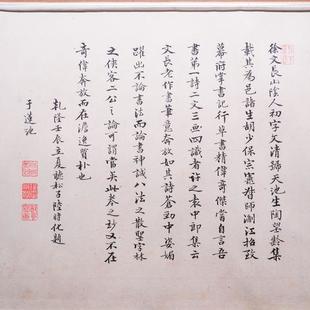 徐文長山陰人初字文清號天池生陶望齡集
載其為邑諸生胡少保宗憲督師浙江招致
幕府掌書記行草書精偉奇傑嘗自言吾
書第一詩二文三畫四識者許之袁中郎集云
文長老作書筆意奔放如其詩蒼勁中姿媚
躍出不論書法而論書神誠八法之散聖字林
之俠客二公之論可謂當矣此卷之妙又不在
奇偉奔放而在澹逸質朴也
乾隆壬辰立夏聽松子陸時化題
于蓮池